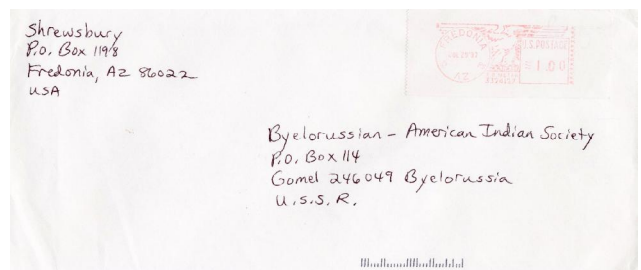 Shrewsbury
P.O. Box 1198
Fredonia, Az 86022
USA
FREDONIA
AZ
U.S. POSTAGE
1.00
Byelorussian - American Indian Society
P.O. Box 114
Gomel 246049 Byelorussia
U.S.S.R.